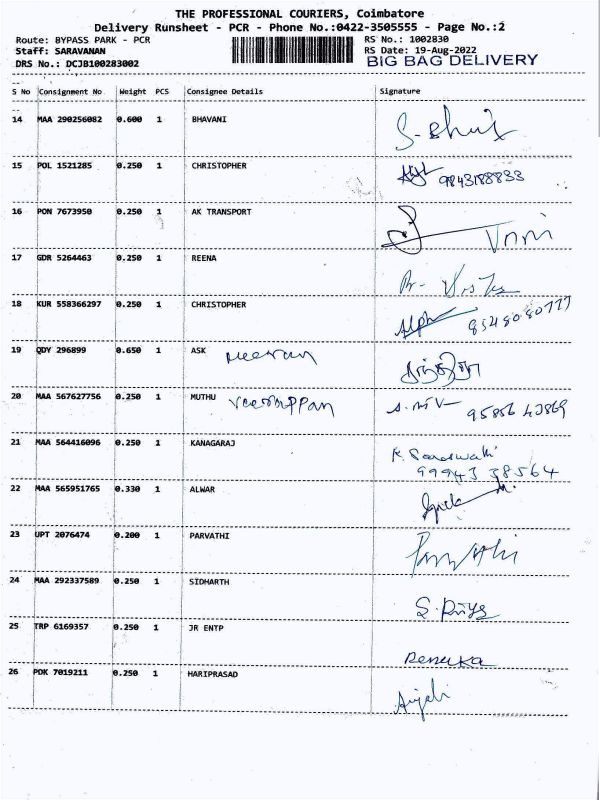 THE PROFESSIONAL COURIERS, Coimbatore
Delivery Runsheet - PCR - Phone No.:0422-3505555 - Page No.:2
Route: BYPASS PARK - PCR RS No.: 1002830
Staff: SARAVANAN RS Date: 19-Aug-2022
DRS No.: DCJB100283002 BIG BAG DELIVERY
S No Consignment No Weight PCS Consignee Details Signature
14 MAA 290256082 0.600 1 BHAVANI
15 POL 1521285 0.250 1 CHRISTOPHER 9843188833
16 PON 7673950 0.250 1 AK TRANSPORT
17 GDR 5264463 0.250 1 REENA
18 KUR 558366297 0.250 1 CHRISTOPHER
19 QDY 296899 0.650 1 ASK
20 MAA 567627756 0.250 1 MUTHU Veerappan
21 MAA 564416096 0.250 1 KANAGARAJ
99943 38564
22 MAA 565951765 0.330 1 ALWAR
23 UPT 2076474 0.200 1 PARVATHI
24 MAA 292337589 0.250 1 SIDHARTH S. Priya
25 TRP 6169357 0.250 1 JR ENTP Renuka
26 PDK 7019211 0.250 1 HARIPRASAD Anjali